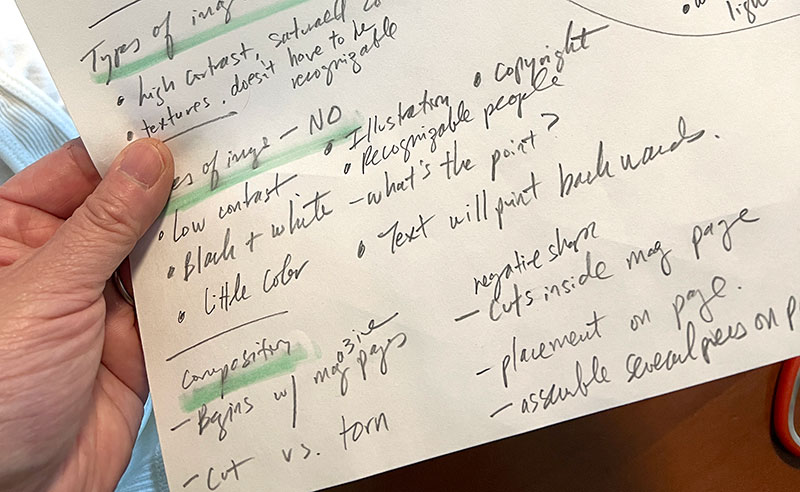 Types of imag
• high contrast, saturated co
• textures. doesn't have to be
recognizable
es of image – NO
• Low contrast
• Black + white – what's the point?
• Little color
• Illustration
• Recognizable people
• Copyright
• Text will print backwards.
Composition
– Begins w/ magazine
pages
– Cut vs. torn
negative shape
– Cuts inside mag page
– placement on page.
– assemble several pieces on p
light